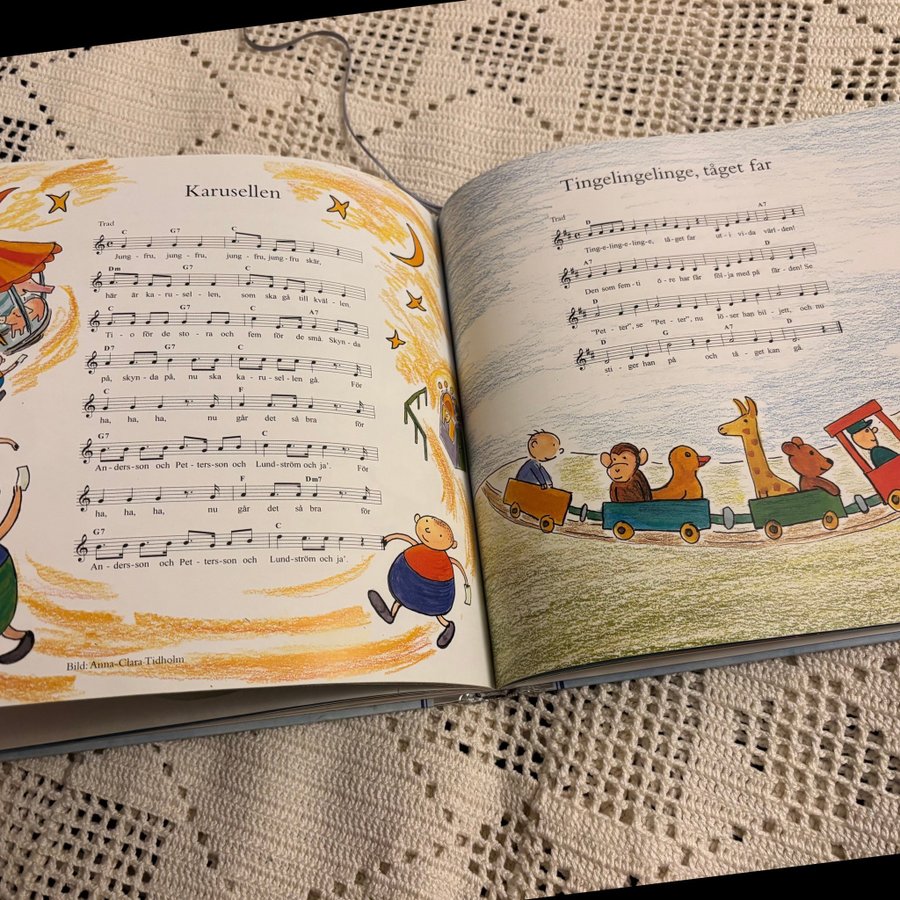 Karusellen
Trad
C G7 C
Jung - fru, jung - fru, jung - fru, jung - fru skär,
Dm G7 C
här är ka - ru - sel - len, som ska gå till kväl - len.
C G7 C A7
Ti - o för de sto - ra och fem för de små. Skyn - da
D7 G7 C
på, skyn - da på, nu ska ka - ru - sel - len gå. För
C F
ha, ha, ha, nu går det så bra för
G7 C
An - ders - son och Pet - ters - son och Lund - ström och ja'. För
F Dm7
ha, ha, ha, nu går det så bra för
G7 C
An - ders - son och Pet - ters - son och Lund - ström och ja'.
Bild: Anna-Clara Tidholm
Tingelingelinge, tåget far
Trad
D A7
Ting - e - ling - e - ling - e, tå - get far ut - i vi - da värl - den!
A7 D
Den som fem - ti ö - re har får föl - ja med på fär - den! Se
D
"Pet - ter", se "Pet - ter", nu lö - ser han bil - jett, och nu
D G A7 D
sti - ger han på och tå - get kan gå.